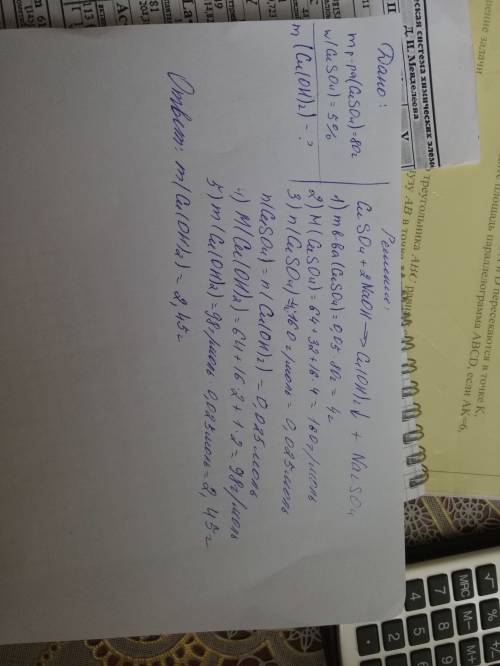 Дано:
mр-ра(CuSO4)=80г
w(CuSO4)=5%
m(Cu(OH)2)-?
Решение:
CuSO4+2NaOH→Cu(OH)2↓ + Na2SO4
1) mв-ва(CuSO4)=0,05·80г=4г
2) M(CuSO4)=64+32+16·4=160г/моль
3) n(CuSO4)=4:160г/моль=0,025моль
n(CuSO4)=n(Cu(OH)2)=0,025моль
4) M(Cu(OH)2)=64+16·2+1·2=98г/моль
5) m(Cu(OH)2)=98г/моль·0,025моль=2,45г
Ответ: m(Cu(OH)2)=2,45г
еская система химических элеме
Д. И. Менделеева
V
нение задачи
треугольника ABC
AB в точке
площадь параллелограмма ABCD, если AK=6,
D пересекаются в точке K,
√
%
MRC
M-
4
7
8
9
5
6
2